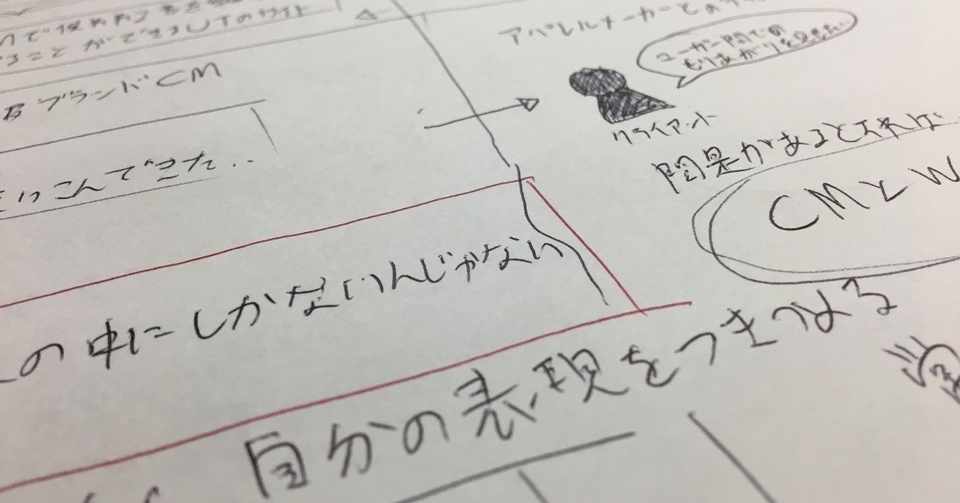 ることができるしてのサイト
ブランドCM
アパレルメーカーとの
ユーザー間での
もりあがりを見きたい
クライアント
こんできた..
問題があるとすれば
CMとW
の中にしかないんじゃない
自分の表現をつきつめる